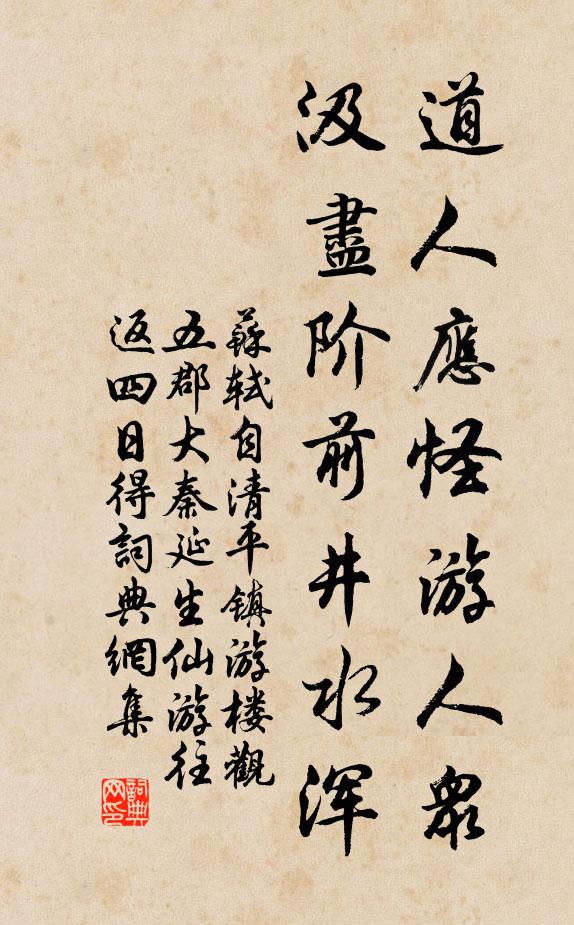 道人應怪游人衆
汲盡阶前井水浑
蘇轼自清平镇游楼觀
五郡大秦延生仙游往
返四日得詞典網集
詞典网印